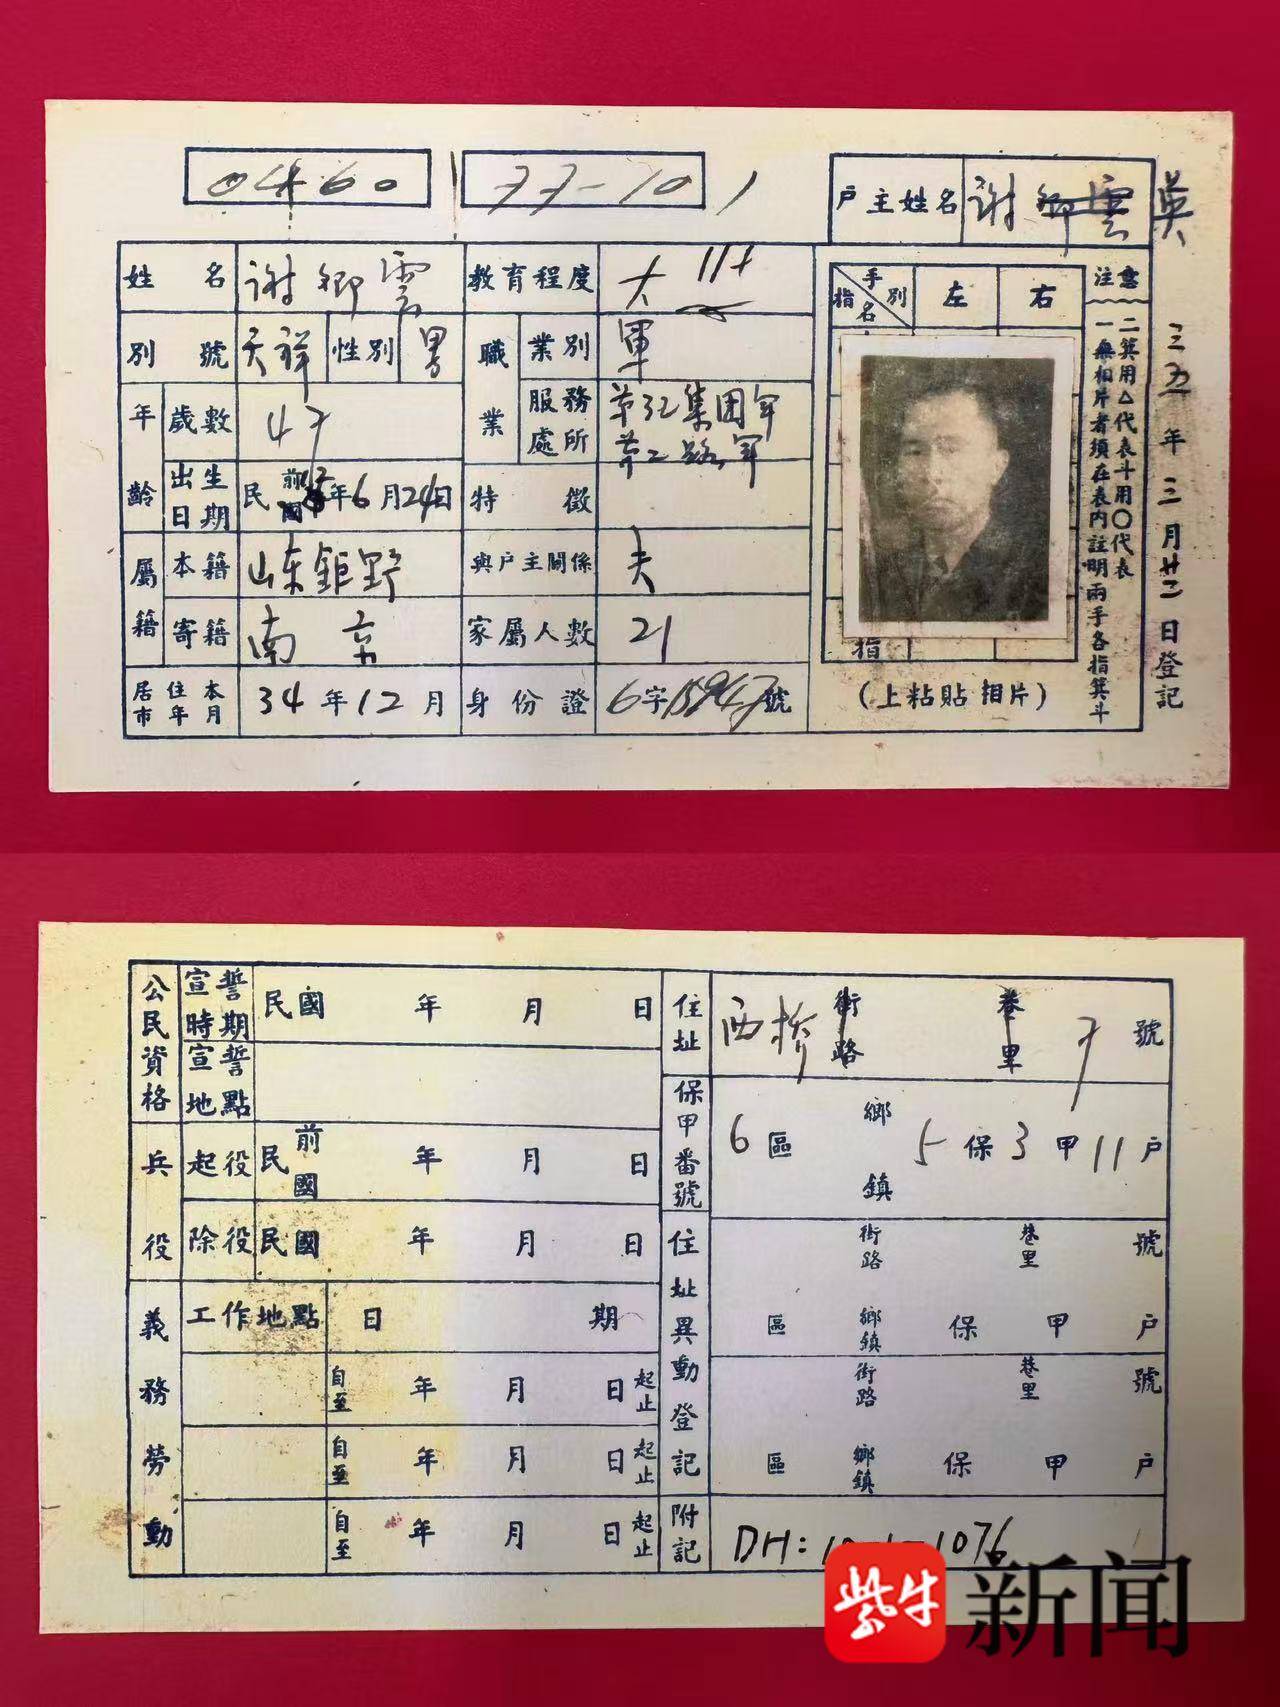 0460 77-10
戶主姓名 谢卿雲 吳
姓名 谢卿雲 教育程度 大
別號 天祥 性別 男 職業 業別 軍
年齡 歲數 47 服務處所 第32集团军
第二路军
出生日期 民前國 年6月24日 特徵
屬籍 本籍 山东鉅野 與戶主關係 夫
寄籍 南京 家屬人數 21
居住本市年月 34年12月 身份證 6字 號
手別 指名 左 右
指
(上粘貼相片)
注意
一 無相片者須在表內註明兩手各指箕斗
二 箕用△代表斗用〇代表
三五年三月廿二日登記
公民資格 宣誓時期 民國 年 月 日
宣誓地點
兵役 起役 民前國 年 月 日
除役 民國 年 月 日
義務勞動 工作地點 日期
自至 年 月 日 起止
自至 年 月 日 起止
自至 年 月 日 起止
住址 西桥 街路 巷里 7 號
保甲番號 6區 鄉鎮 5保3甲11戶
住址異動登記 街路 巷里 號
區 鄉鎮 保 甲 戶
街路 巷里 號
區 鄉鎮 保 甲 戶
附記 DH: 1076
紫牛 新闻